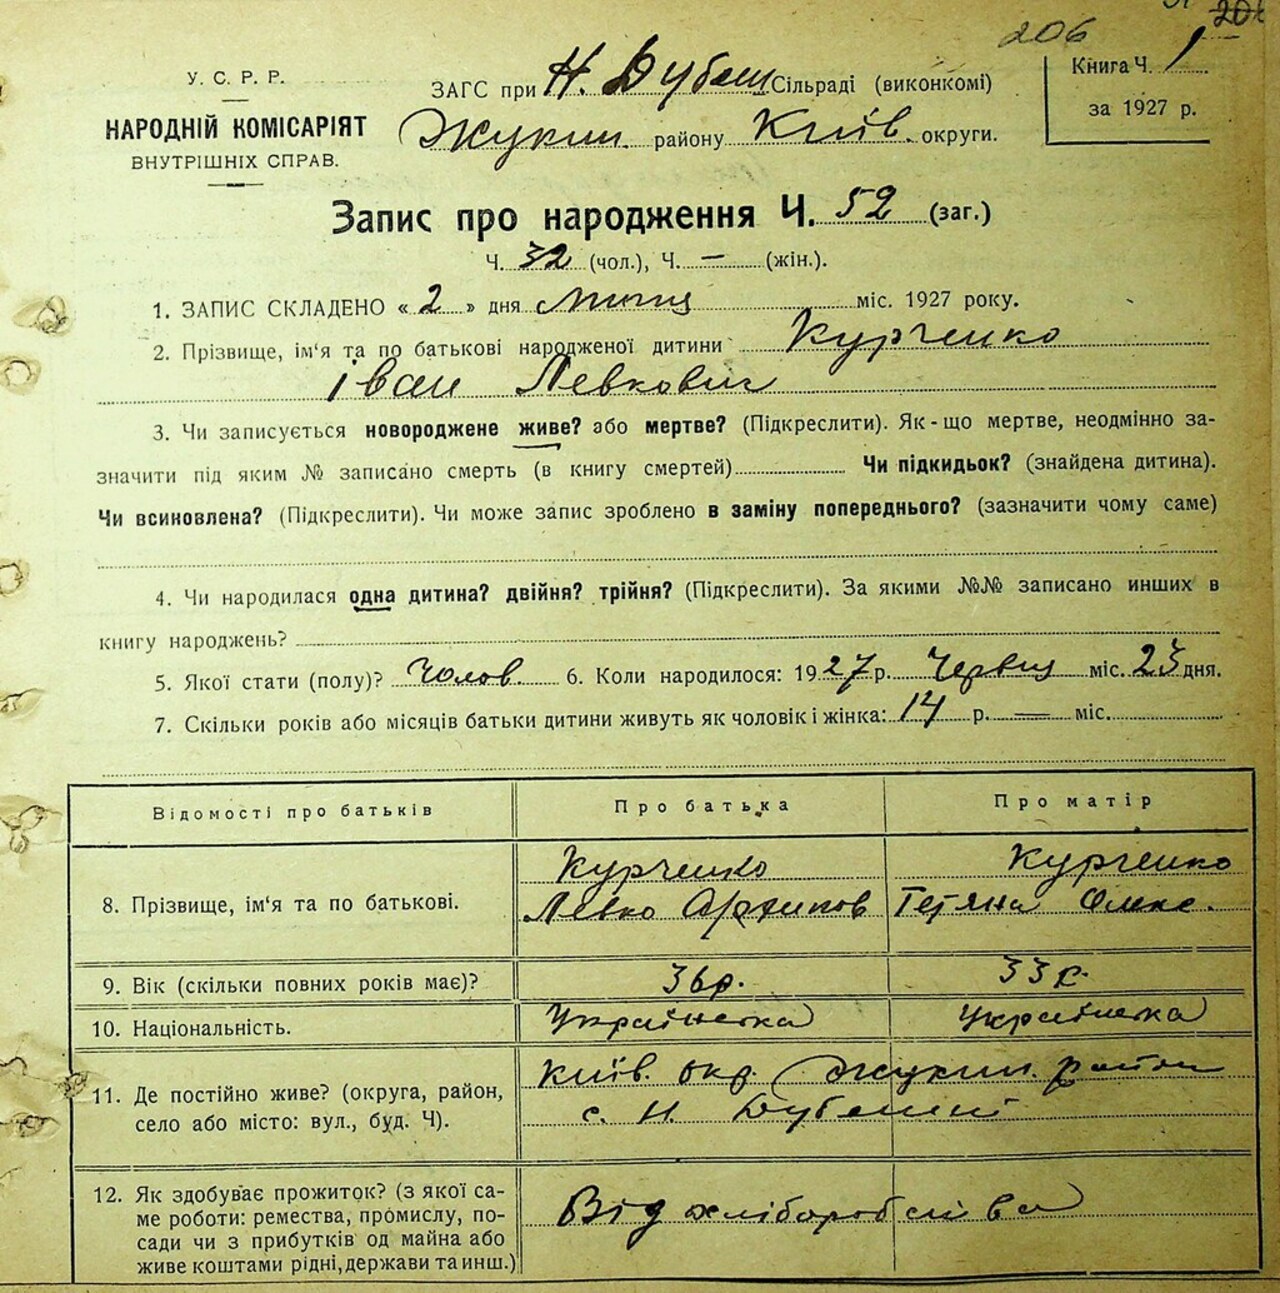 206
У. С. Р. Р.
НАРОДНІЙ КОМІСАРІЯТ
ВНУТРІШНІХ СПРАВ.
ЗАГС при Н. Дубеш Сільраді (виконкомі)
Жукин. району Київ. округи.
Книга Ч. 1
за 1927 р.
Запис про народження Ч. 52 (заг.)
Ч. 32 (чол.), Ч. — (жін.).
1. ЗАПИС СКЛАДЕНО «2» дня липця міс. 1927 року.
2. Прізвище, ім'я та по батькові народженої дитини Курченко
Іван Левкович
3. Чи записується новороджене живе? або мертве? (Підкреслити). Як-що мертве, неодмінно за-
значити під яким № записано смерть (в книгу смертей) Чи підкидьок? (знайдена дитина).
Чи всиновлена? (Підкреслити). Чи може запис зроблено в заміну попереднього? (зазначити чому саме)
4. Чи народилася одна дитина? двійня? трійня? (Підкреслити). За якими №№ записано инших в
книгу народжень?
5. Якої стати (полу)? Чолов. 6. Коли народилося: 1927 р. Червня міс. 23 дня.
7. Скільки років або місяців батьки дитини живуть як чоловік і жінка: 14 р. — міс.
Відомості про батьків Про батька Про матір
8. Прізвище, ім'я та по батькові. Курченко Левко Курченко Тетяна Олекс.
9. Вік (скільки повних років має)? 36р. 33р.
10. Національність. Українська Українська
11. Де постійно живе? (округа, район,
село або місто: вул., буд. Ч).
Київ. окр. Жукин. район
с. Н. Дубешні
12. Як здобуває прожиток? (з якої са-
ме роботи: ремества, промислу, по-
сади чи з прибутків од майна або
живе коштами рідні, держави та инш.)
Від хліборобства